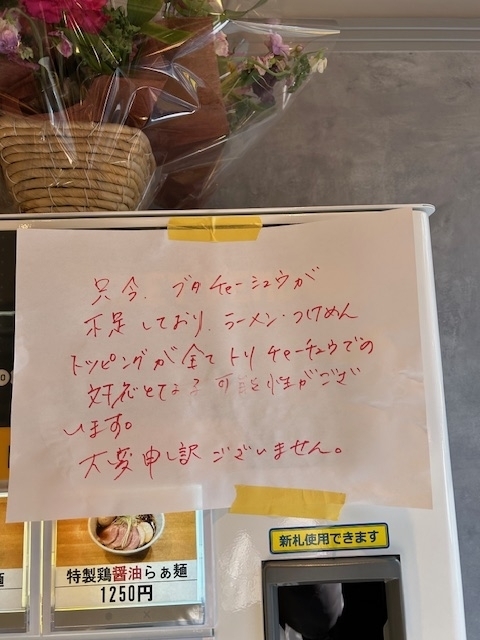 只今、ブタチャーシュウが
不足しており、ラーメン・つけめん
トッピングが全てトリチャーチュウでの
対応となる可能性がござ
います。
大変申し訳ございません。
新札使用できます
特製鶏醤油らぁ麺
1250円
麺